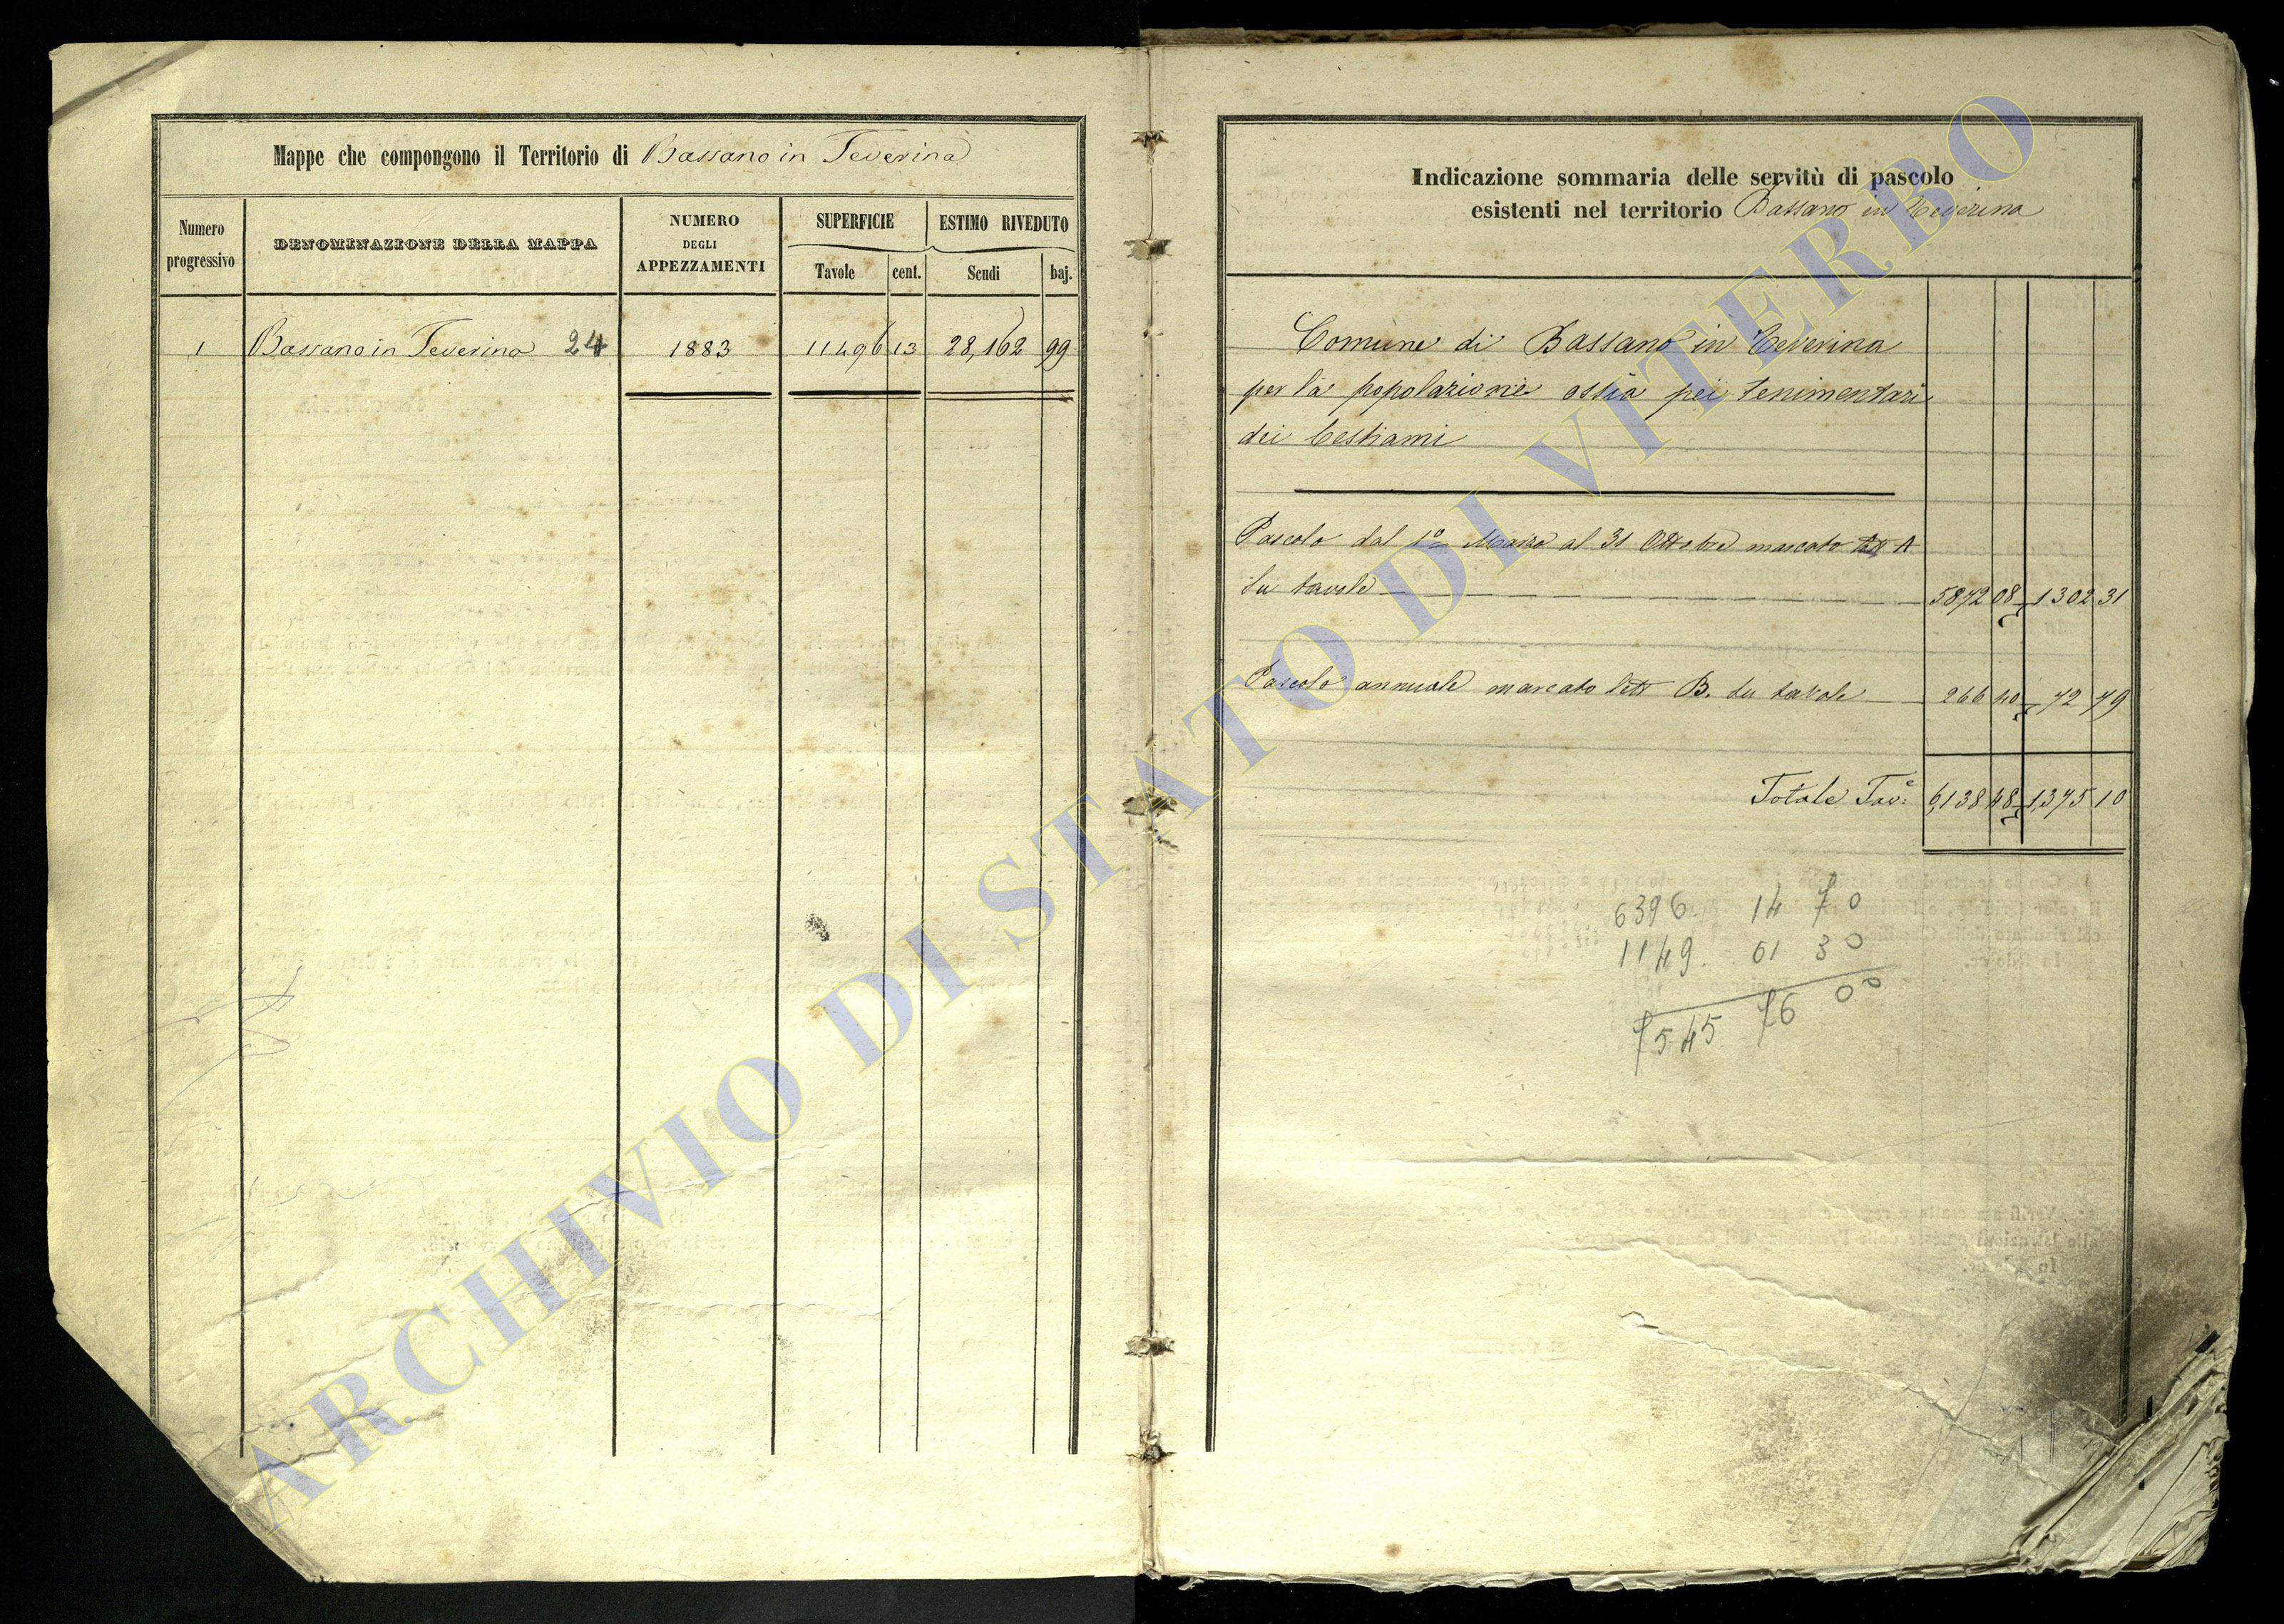 Mappe che compongono il Territorio di Bassano in Teverina
Numero progressivo
DENOMINAZIONE DELLA MAPPA
NUMERO DEGLI APPEZZAMENTI
SUPERFICIE
Tavole cent.
ESTIMO RIVEDUTO
Scudi baj.
1 Bassano in Teverina 24 1883 11496 13 28,162 99
Indicazione sommaria delle servitù di pascolo
esistenti nel territorio Bassano in Teverina
Comune di Bassano in Teverina
per la popolazione ossia pei tenimentari
dei bestiami
Pascolo dal 1º Marzo al 31 Ottobre marcato lett A
su tavole 5872 08 1302 31
Pascolo annuale marcato lett B. su tavole 266 40 72 79
Totale Tav.e 6,138 48 1,375 10
6396. 14 70
1149. 61 30
7545 76 00
ARCHIVIO DI STATO DI VITERBO